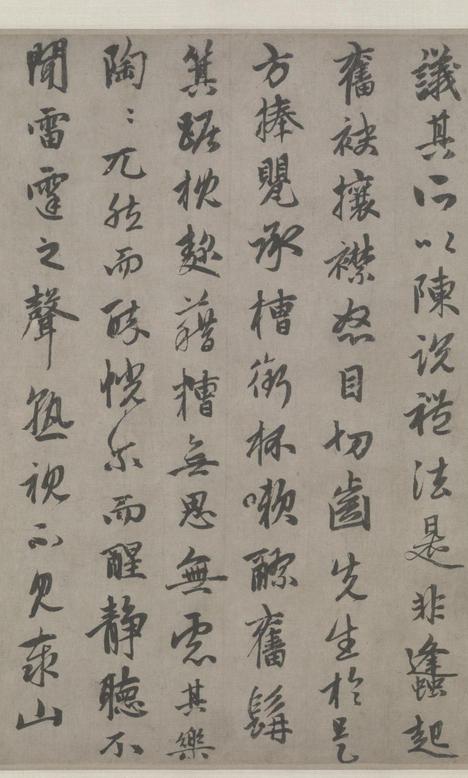 議其所以陳説禮法是非蠭起
奮袂攘襟怒目切齒先生於是
方捧甖承槽銜杯嗽醪奮髯
箕踞枕麴藉糟無思無慮其樂
陶〻兀然而醉恍尔而醒静聽不
聞雷霆之聲熟視不見泰山